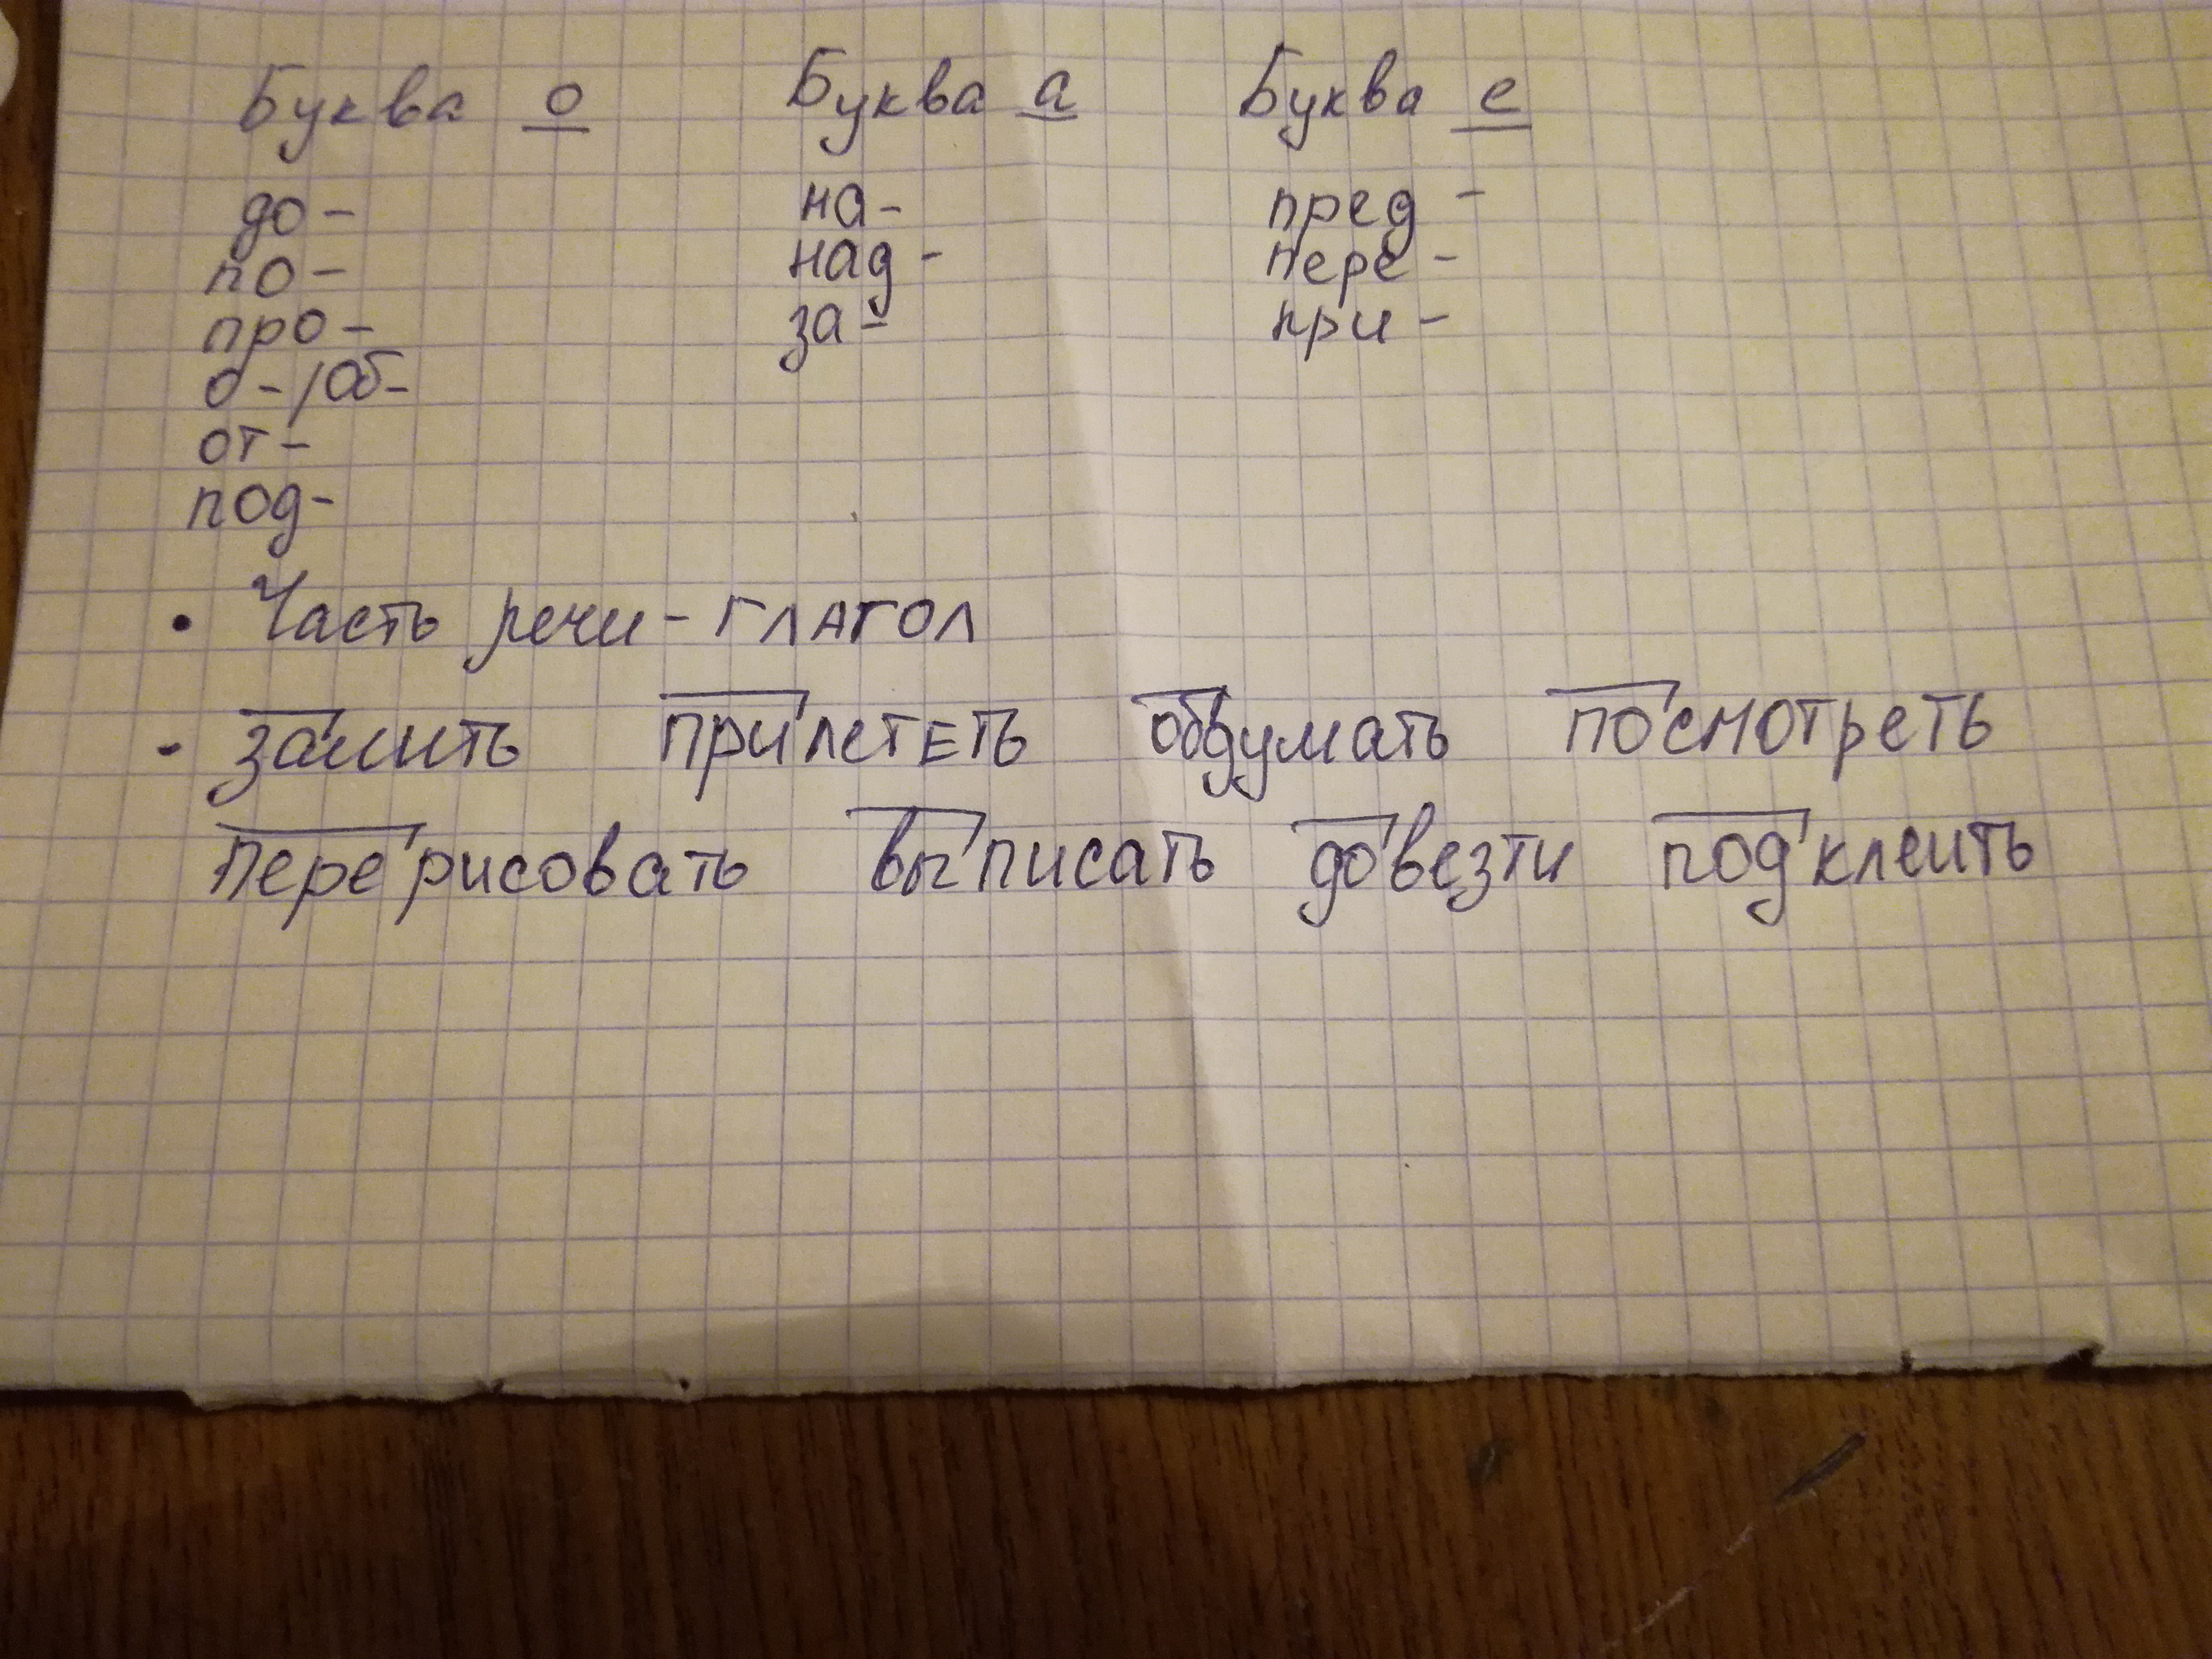 Буква о Буква а Буква е
до- на- пред-
по- над- пере-
про- за- при-
о-/об-
от-
под-
• Часть речи - ГЛАГОЛ
- зашить прилететь обдумать посмотреть
перерисовать выписать довезти подклеить